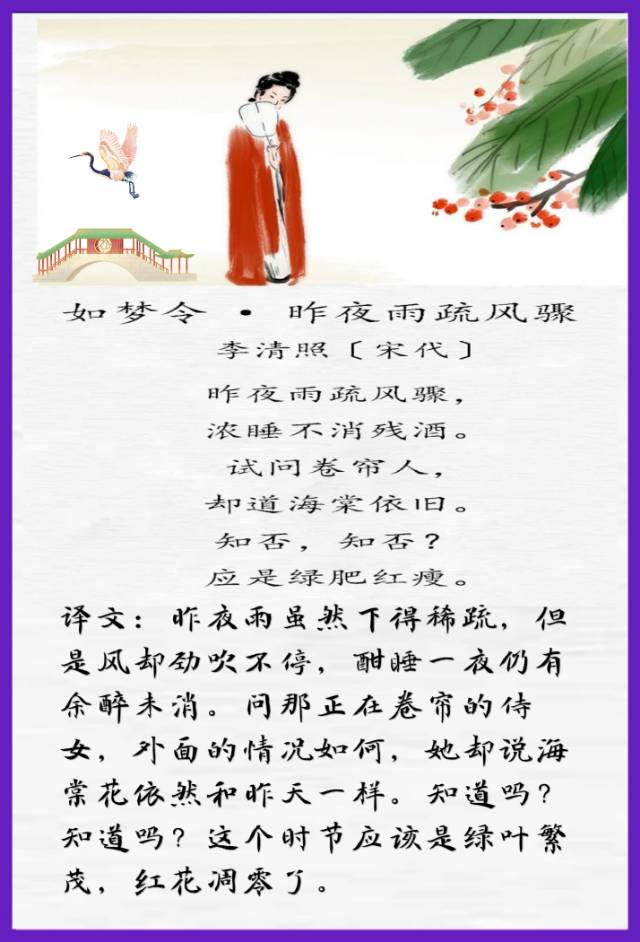 如梦令 · 昨夜雨疏风骤
李清照〔宋代〕
昨夜雨疏风骤，
浓睡不消残酒。
试问卷帘人，
却道海棠依旧。
知否，知否？
应是绿肥红瘦。
译文：昨夜雨虽然下得稀疏，但
是风却劲吹不停，酣睡一夜仍有
余醉未消。问那正在卷帘的侍
女，外面的情况如何，她却说海
棠花依然和昨天一样。知道吗？
知道吗？这个时节应该是绿叶繁
茂，红花凋零了。